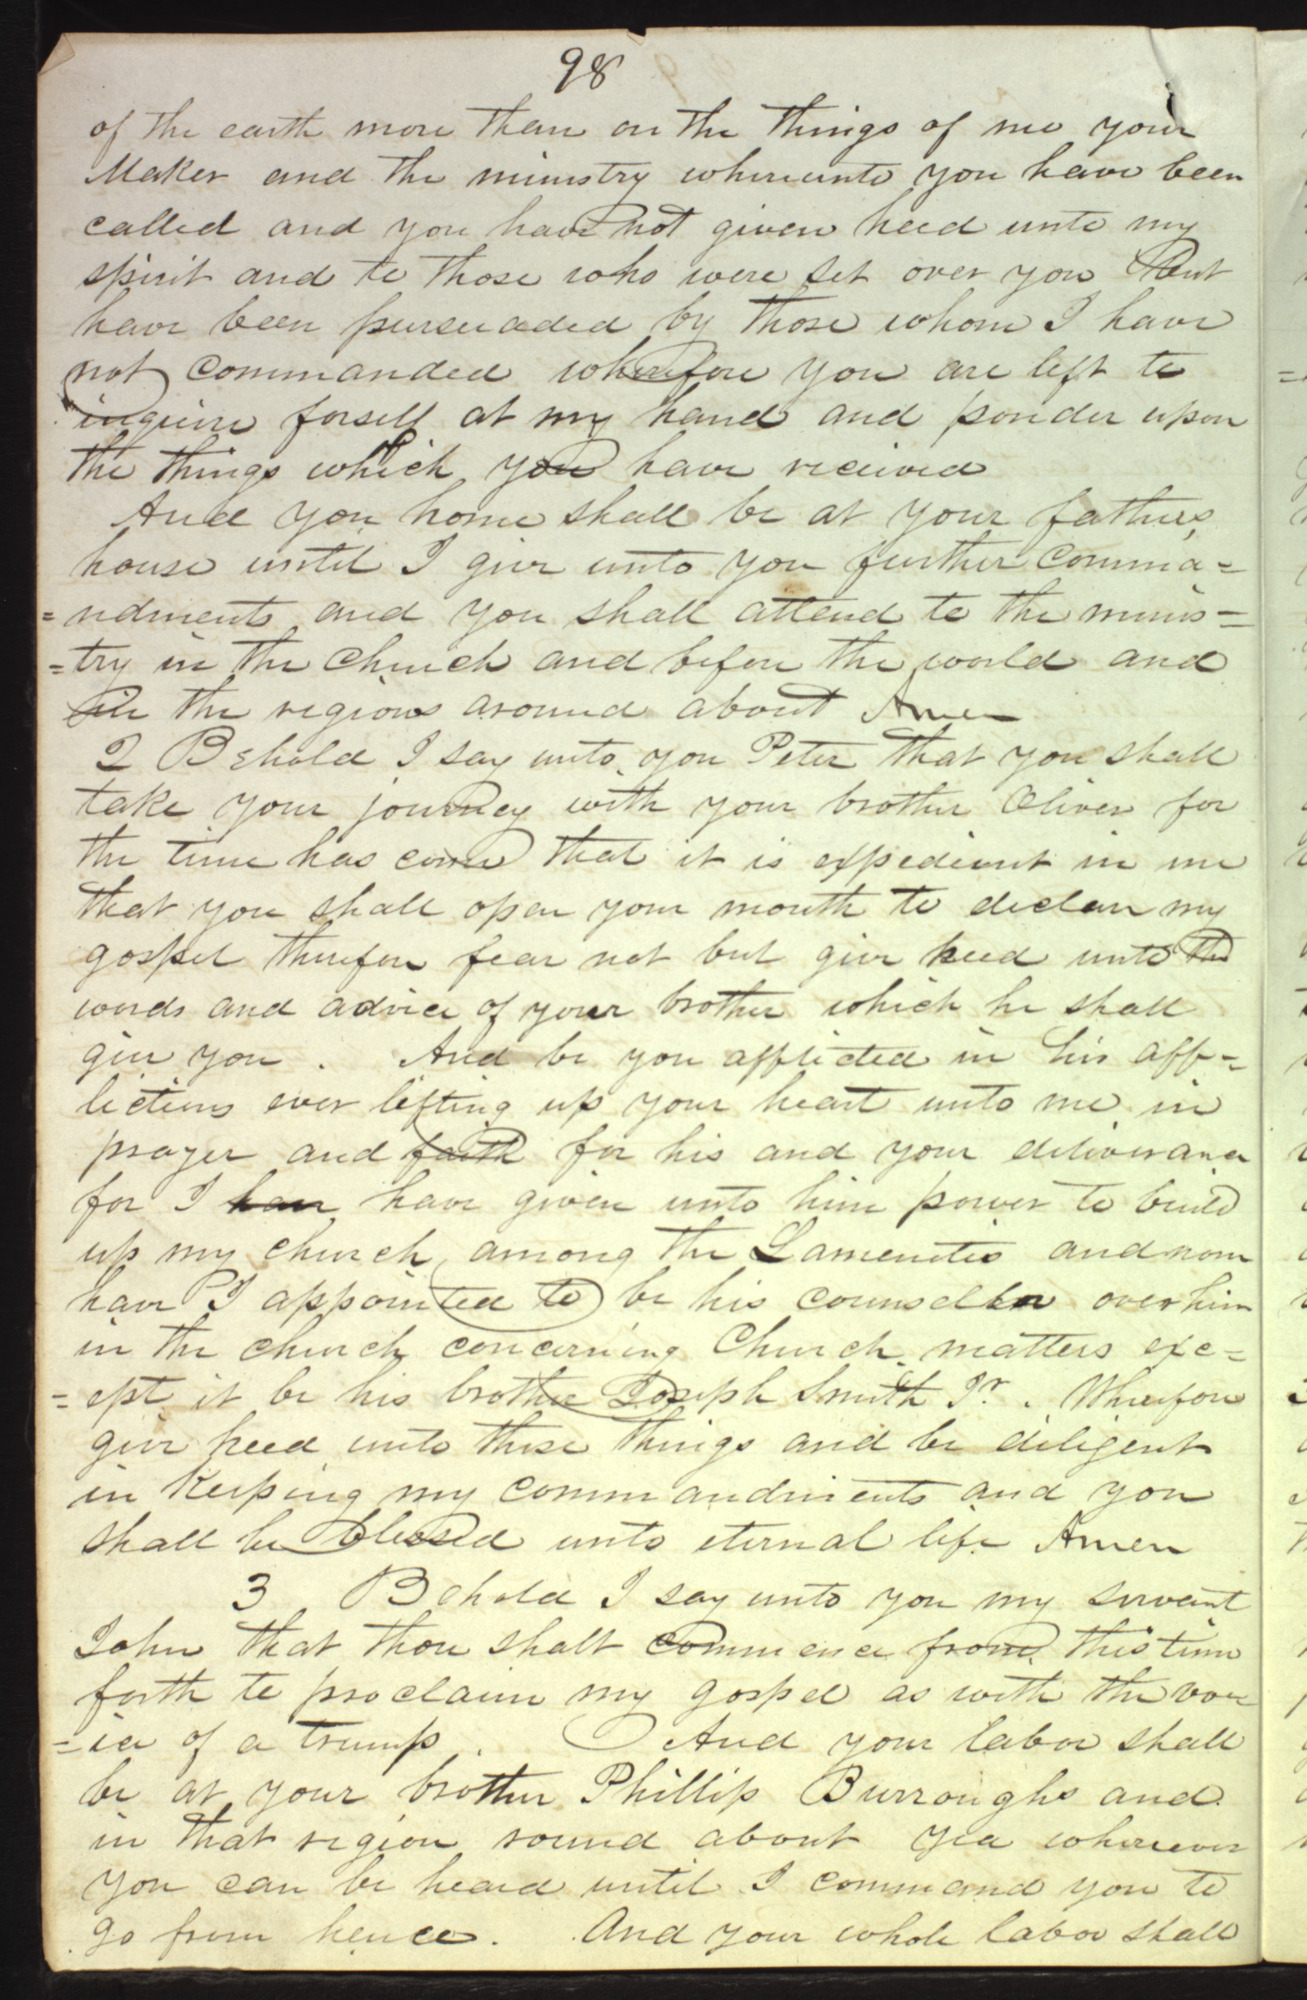 98
of the earth more than on the things of me your
Maker and the ministry whereunto you have been
called and you have not given heed unto my
spirit and to those who were set over you but
have been persuaded by those whom I have
not commanded wherefore you are left to
inquire forself at my hand and ponder upon
the things which you have recieved
And you home shall be at your fathers
house until I give unto you further comma=
=ndments and you shall attend to the minis=
=try in the church and before the world and
in the regions around about Amen
2 Behold I say unto you Peter that you shall
take your journey with your brother Oliver for
the time has come that it is expedient in me
that you shall open your mouth to declare my
gospel therefore fear not but give heed unto the
words and advice of your brother which he shall
give you. And be you afflicted in his aff=
lictions ever lifting up your heart unto me in
prayer and faith for his and your deliverance
for I have have given unto him power to build
up my church among the Lamenites and none
have I appointed to be his counsellor over him
in the church concerning Church matters exc=
=ept it be his brother Joseph Smith Jr. Wherefore
give heed unto these things and be diligent
in keeping my commandments and you
shall be blessed unto eternal life Amen
3 Behold I say unto you my servant
John that thou shalt commence from this time
forth to proclaim my gospel as with the vo
=ice of a trump. And your labor shall
be at your brother Phillip Burroughs and
in that region round about yea wherever
you can be heard until I command you to
go from hence. And your whole labor shall